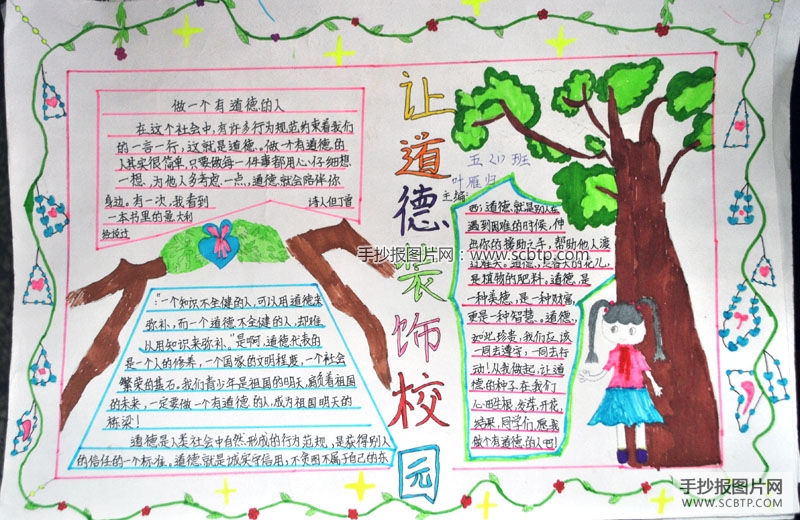 让道德装饰校园
五(2)班
叶雁归
主编:
做一个有道德的人
在这个社会中,有许多行为规范约束着我们
的一言一行,这就是道德。做一个有道德的
人其实很简单,只要做每一件事都用心仔细想
一想,为他人多考虑一点,道德就会陪伴你
身边,有一次,我看到
诗人但丁曾
一本书里的意大利
经说过
“一个知识不全健的人,可以用道德来
弥补,而一个道德不全健的人,却难
以用知识来弥补。”是啊,道德代表的
是一个人的修养,一个国家的文明程度,一个社会
繁荣的基石,我们青少年是祖国的明天,肩负着祖国
的未来,一定要做一个有道德的人,成为祖国明天的
栋梁!
道德是人类社会中自然形成的行为范规,是获得别人
的信任的一个标准。道德就是诚实守信用,不贪图不属于自己的东
西;道德就是别人在
遇到困难的时候,伸
出你的援助之手,帮助他人渡
过难关。道德,是春天的花儿,
是植物的肥料。道德,是
一种美德,是一种财富,
更是一种智慧。道德,
如此珍贵,我们应该
一同去遵守,一同去行
动!从我做起,让道
德的种子在我们
心田生根,发芽,开花,
结果,同学们,愿我
做个有道德的人吧!
手抄报图片网:
www.scbtp.com
手抄报图片网
WWW.SCBTP.COM